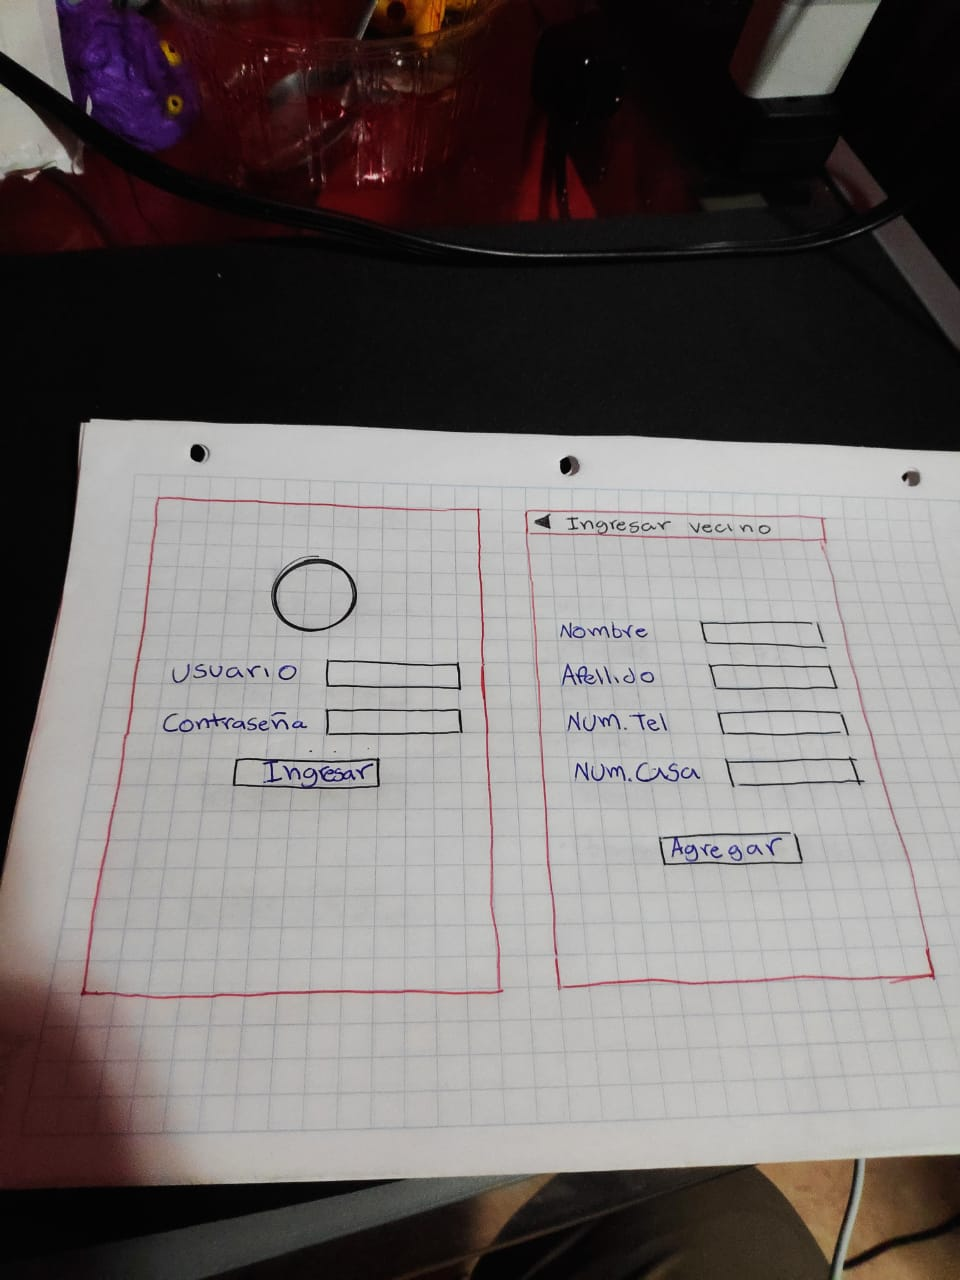 Usuario
Contraseña
Ingresar
Ingresar vecino
Nombre
Apellido
Num. Tel
Num. Casa
Agregar